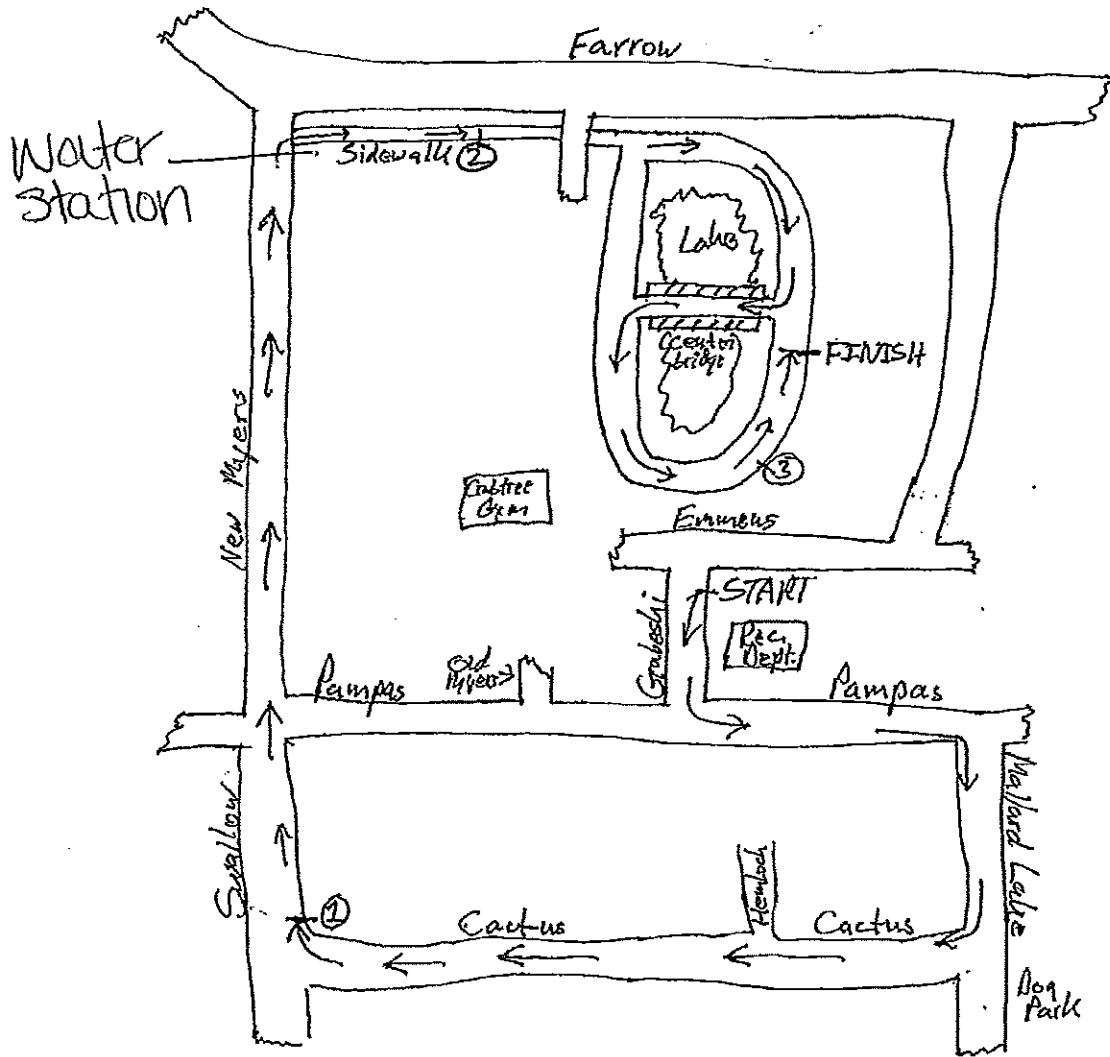 Farrow
Water
Station
Sidewalk 2
Lake
Bridge
FINISH
New Myers
3
Crabtree
Gym
Emmens
START
Rec.
Dept.
Old
Myers
Pampas
Pampas
Swallow
Mallard Lake
Hemlock
1
Cactus
Cactus
Dog
Park